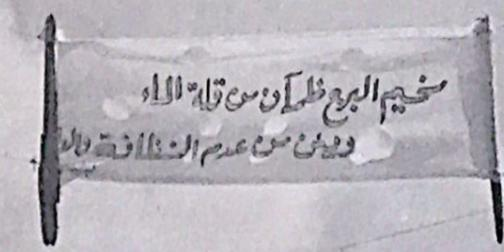 مخيم البرج ظمآن من قلة الماء
ويئن من عدم النظافة